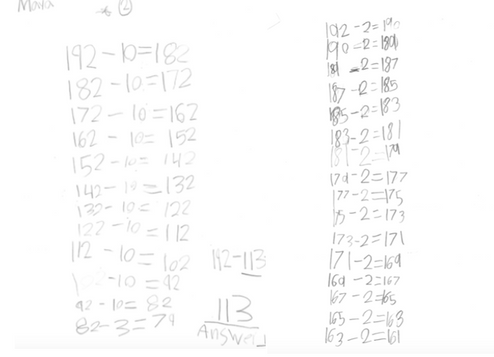 ②
192 - 10 = 182
182 - 10 = 172
172 - 10 = 162
162 - 10 = 152
152 - 10 = 142
142 - 10 = 132
132 - 10 = 122
122 - 10 = 112
112 - 10 = 102
- 10 = 92
92 - 10 = 82
82 - 3 = 79
192 - 113
113
Answer
192 - 2 = 190
190 - 2 =
- 2 = 187
187 - 2 = 185
185 - 2 = 183
183 - 2 = 181
181 - 2 = 179
179 - 2 = 177
177 - 2 = 175
175 - 2 = 173
173 - 2 = 171
171 - 2 = 169
169 - 2 = 167
167 - 2 = 165
165 - 2 = 163
163 - 2 = 161